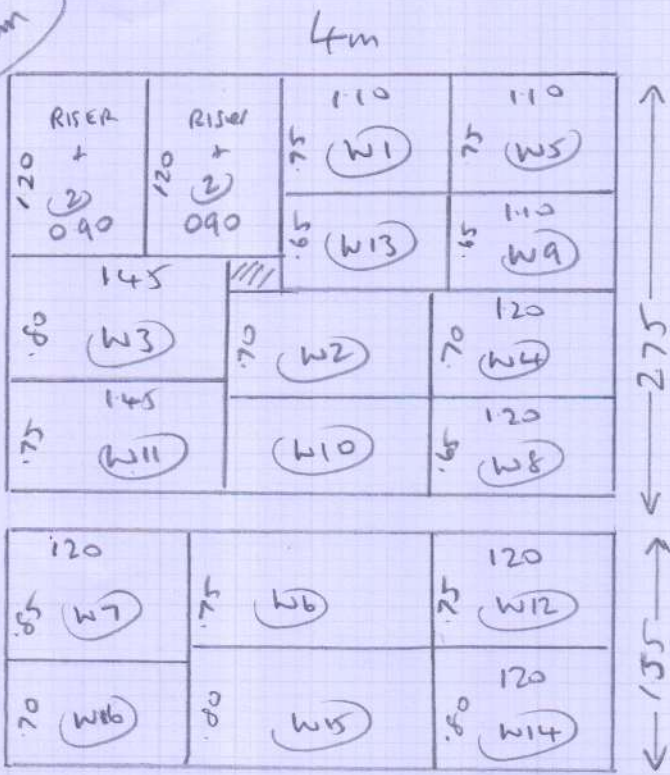 4m
RISER + 2 090
120
RISER + 2 090
120
1·10
.75 W1
1·10
.75 W5
.65 W13
1·10
.65 W9
145
.80 W3
.70 W2
120
.70 W4
145
.75 W11
W10
120
.65 W8
275
120
.85 W7
.75 W6
120
.75 W12
.70 W16
.80 W15
120
.80 W14
155